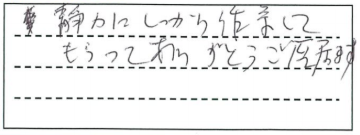 静カに しっかり作業して
もらって ありがとうご座居ます